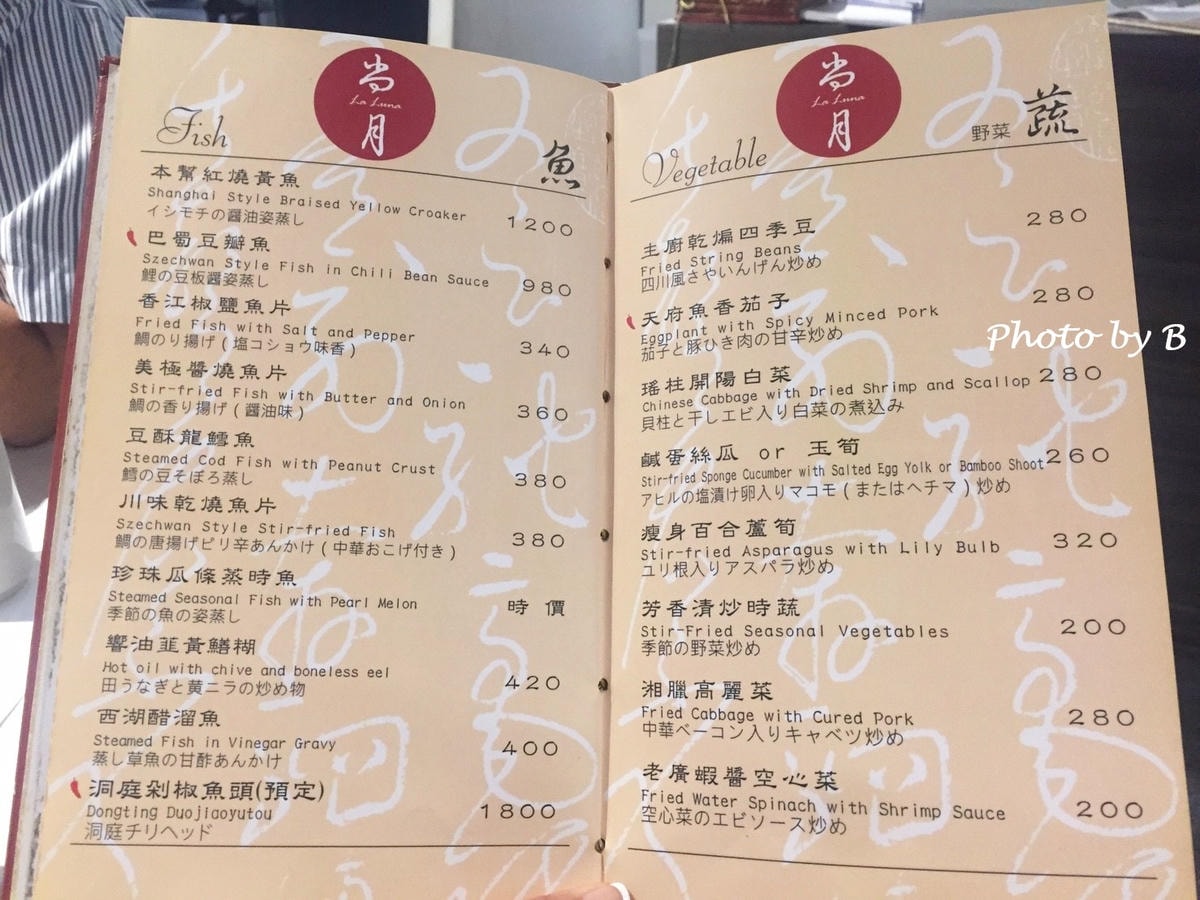 尚
La Luna
月
Fish
魚
本幫紅燒黃魚
Shanghai Style Braised Yellow Croaker
イシモチの醤油姿蒸し
1200
巴蜀豆瓣魚
Szechwan Style Fish in Chili Bean Sauce
鯉の豆板醤姿蒸し
980
香江椒鹽魚片
Fried Fish with Salt and Pepper
鯛のり揚げ(塩コショウ味香)
340
美極醬燒魚片
Stir-fried Fish with Butter and Onion
鯛の香り揚げ(醤油味)
360
豆酥龍鱈魚
Steamed Cod Fish with Peanut Crust
鱈の豆そぼろ蒸し
380
川味乾燒魚片
Szechwan Style Stir-fried Fish
鯛の唐揚げピリ辛あんかけ(中華おこげ付き)
380
珍珠瓜條蒸時魚
Steamed Seasonal Fish with Pearl Melon
季節の魚の姿蒸し
時價
響油韮黃鱔糊
Hot oil with chive and boneless eel
田うなぎと黄ニラの炒め物
420
西湖醋溜魚
Steamed Fish in Vinegar Gravy
蒸し草魚の甘酢あんかけ
400
洞庭剁椒魚頭(預定)
Dongting Duojiaoyutou
洞庭チリヘッド
1800
尚
La Luna
月
Vegetable
野菜 蔬
主廚乾煸四季豆
Fried String Beans
四川風さやいんげん炒め
280
天府魚香茄子
Eggplant with Spicy Minced Pork
茄子と豚ひき肉の甘辛炒め
280
Photo by B
瑤柱開陽白菜
Chinese Cabbage with Dried Shrimp and Scallop
貝柱と干しエビ入り白菜の煮込み
280
鹹蛋絲瓜 or 玉筍
Stir-fried Sponge Cucumber with Salted Egg Yolk or Bamboo Shoot
アヒルの塩漬け卵入りマコモ(またはヘチマ)炒め
260
瘦身百合蘆筍
Stir-fried Asparagus with Lily Bulb
ユリ根入りアスパラ炒め
320
芳香清炒時蔬
Stir-Fried Seasonal Vegetables
季節の野菜炒め
200
湘臘高麗菜
Fried Cabbage with Cured Pork
中華ベーコン入りキャベツ炒め
280
老廣蝦醬空心菜
Fried Water Spinach with Shrimp Sauce
空心菜のエビソース炒め
200